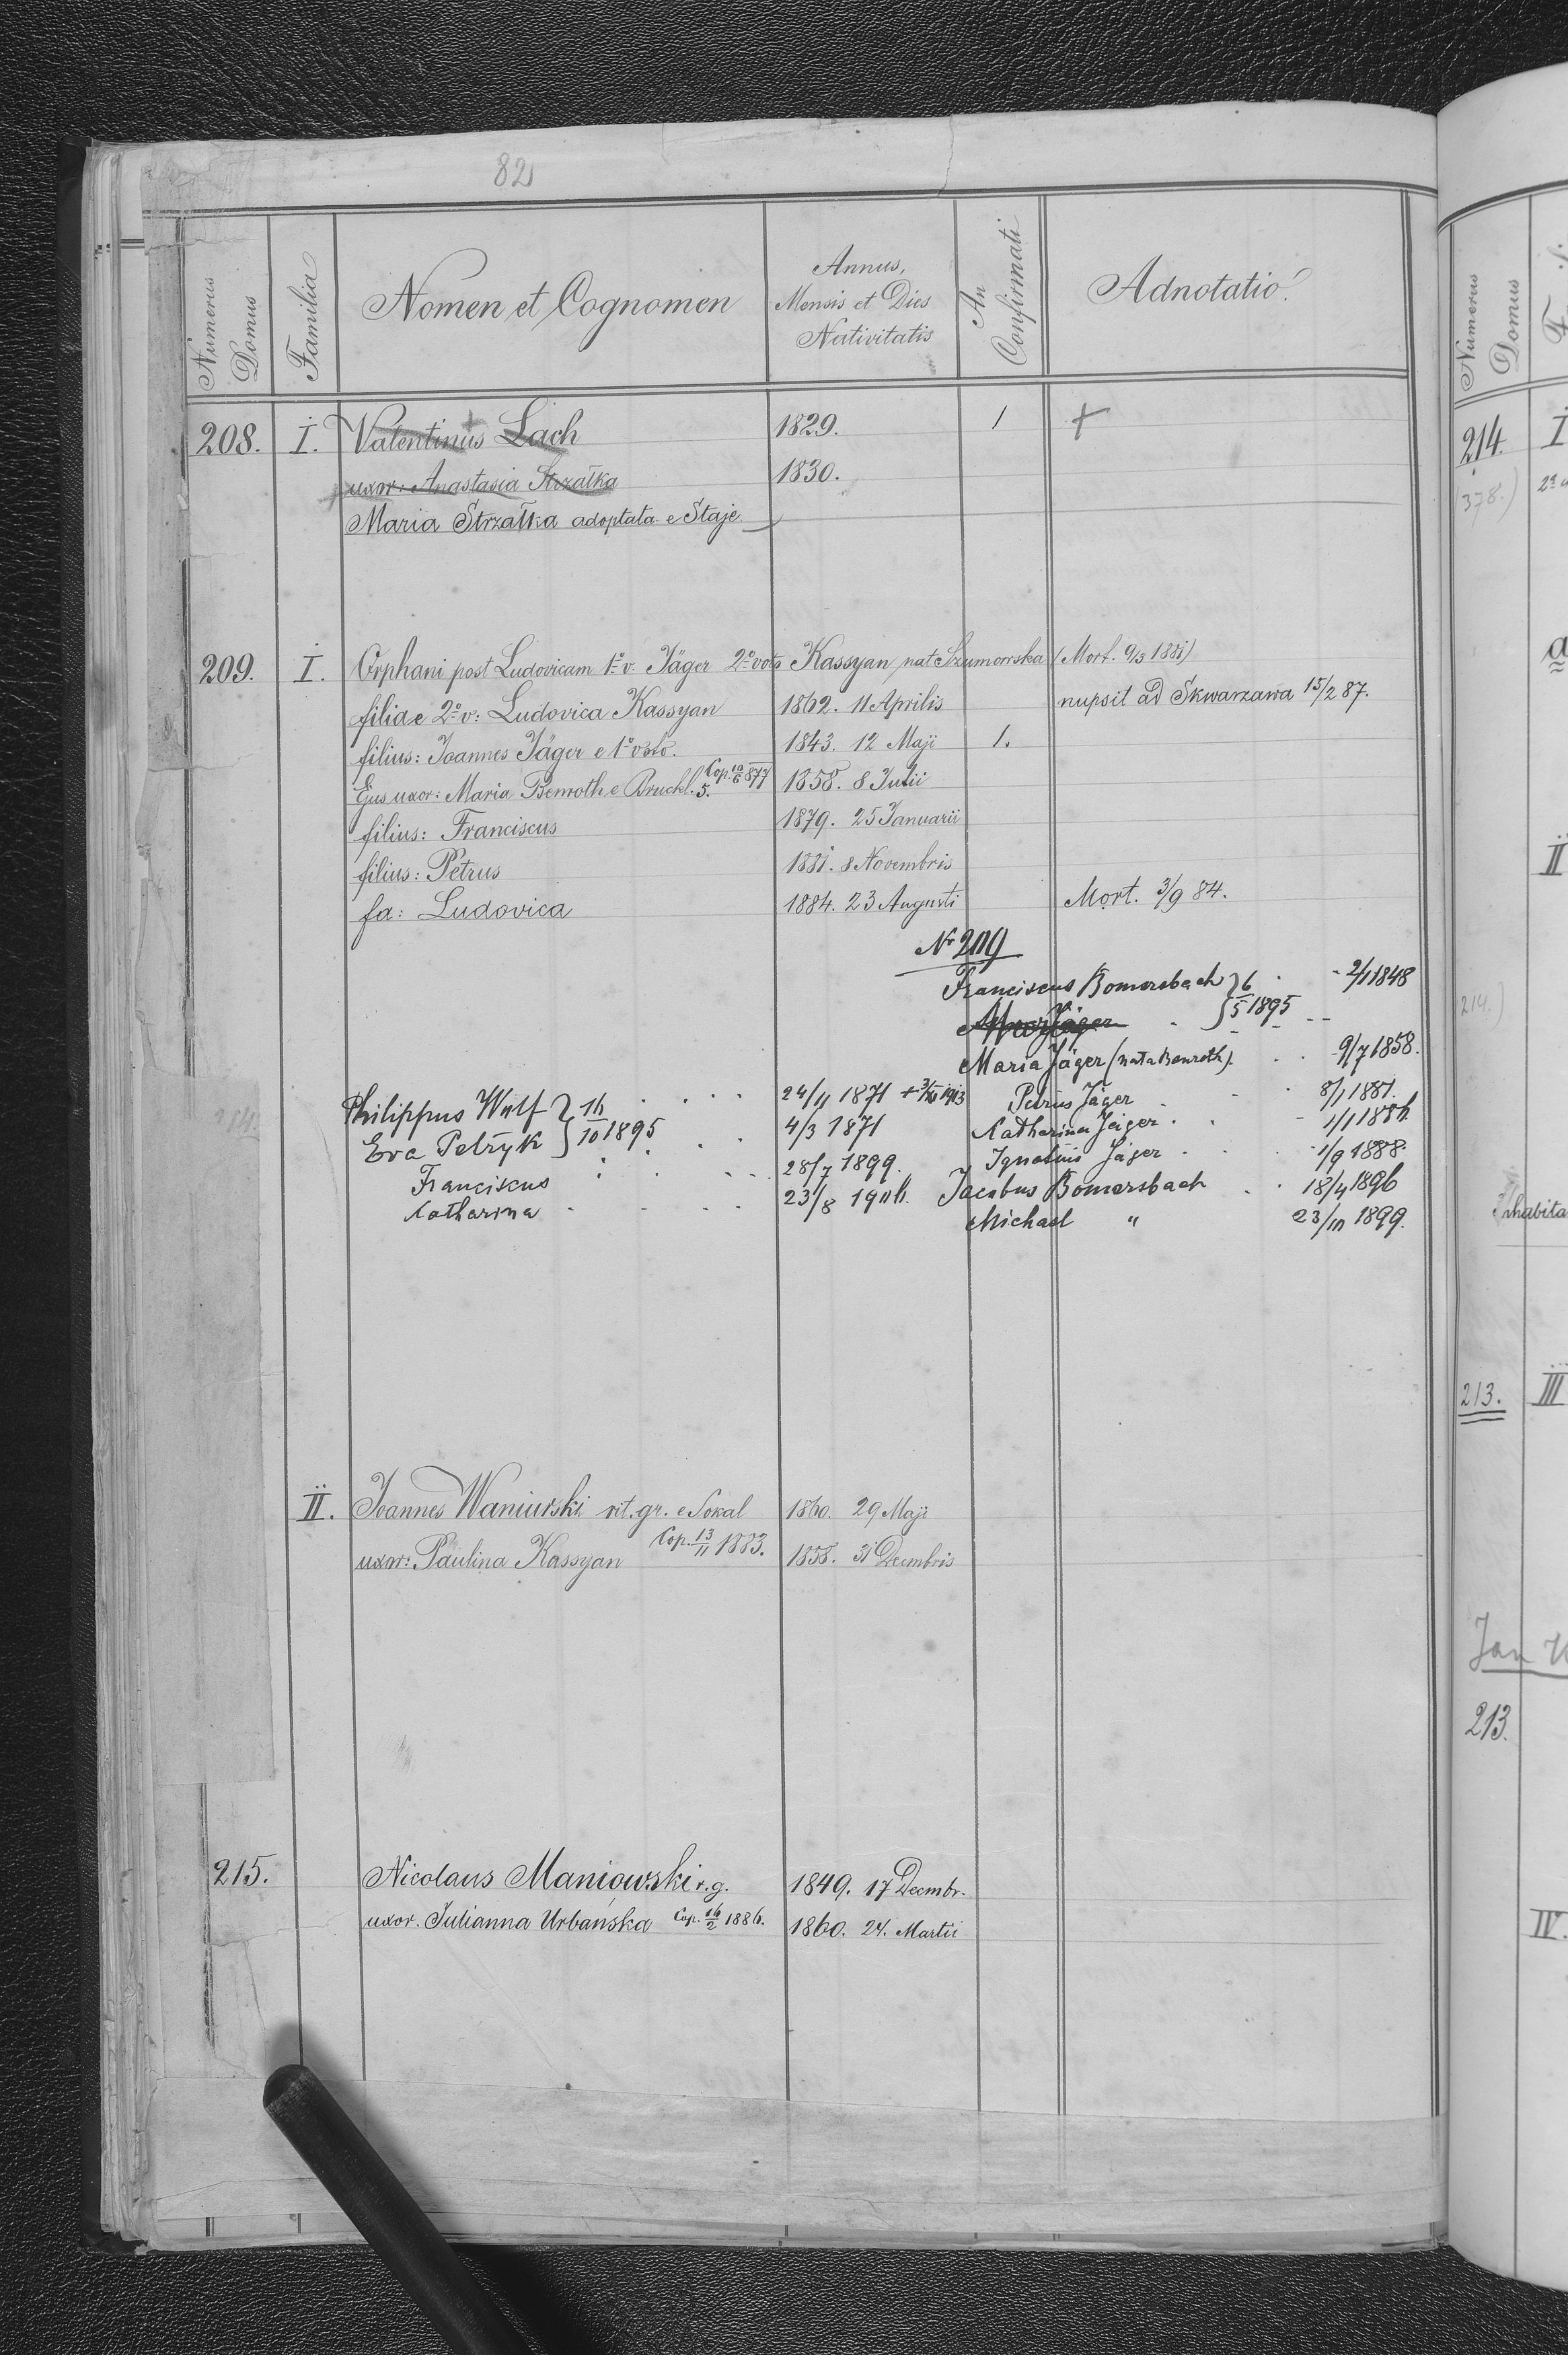 82
Numerus Domus
Familia
Nomen et Cognomen
Annus, Mensis et Dies Nativitatis
An Confirmati
Adnotatio.
208. I. Valentinus Lach 1829. 1 +
uxor: Anastasia Strzałka 1830.
Maria Strzałka adoptata e Staje
209. I. Orphani post Ludovicam 1º v. Jäger 2º voto Kassyan nat Szumorska (Mort. 9/3 1881)
filia e 2º v: Ludovica Kassyan 1862. 11 Aprilis nupsit ad Skwarzawa 15/2 87.
filius: Joannes Jäger e 1º voto. 1843. 12 Maji 1.
Ejus uxor: Maria Benroth e Bruckl. 5. Cop. 10/6 877 1858. 8 Julii
filius: Franciscus 1879. 25 Januarii
filius: Petrus 1881. 8 Novembris
fa: Ludovica 1884. 23 Augusti Mort. 3/9 84.
Nr 209
Franciscus Bomersbach } 6/5 1895 2/1 1848
Maria Jäger (nata Benroth) 9/7 1858.
Philippus Wulf } 16/10 1895 24/11 1871 + 1913
Petrus Jäger 8/1 1881.
Eva Petryk 4/3 1871
Katharina Jäger 1/1 1886
Franciscus 28/7 1899.
Ignatius Jäger 1/9 1888.
Katharina 23/8 1906.
Jacobus Bomersbach 18/4 1896
Michael " 23/10 1899.
II. Joannes Waniurski rit. gr. e Sokal 1860. 29 Maji
uxor: Paulina Kassyan Cop. 13/11 1883. 1858. 31 Decmbris
215. Nicolaus Maniowski r. g. 1849. 17 Decmbr.
uxor. Julianna Urbańska Cop. 16/2 1886. 1860. 24. Martii
Numerus Domus
214. I
(378.)
II
214.)
Inhabita
213. III
Jan
213.
IV.